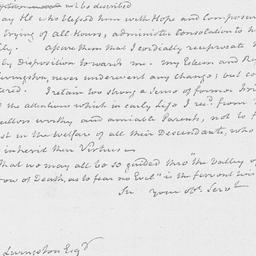 will be described
ay He who blessed him with Hope and Composure
trying of all Hours, administer consolation to h
ily. Assure them that I cordially reciprocate
ly Disposition towards me. My Esteem and Re
Livingston, never underwent any change; but co
tered. I retain too strong a sense of former Fri
the attentions which in early Life I rec.d from
ellors worthy and amiable Parents, not to f
est in the welfare of all their Descendants, who
inherit their Virtues
that we may all be so guided thro' the "Valley of
ow of Death, as to fear no Evil" is the fervent wis
Sir your Ob.t Serv.t
Livingston Esq.r